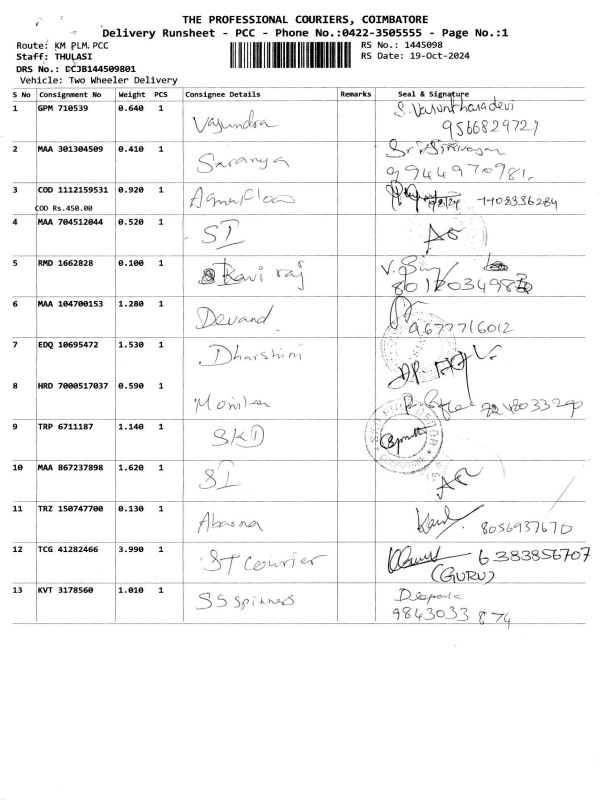 THE PROFESSIONAL COURIERS, COIMBATORE
Delivery Runsheet - PCC - Phone No.:0422-3505555 - Page No.:1
Route: KM PLM.PCC RS No.: 1445098
Staff: THULASI RS Date: 19-Oct-2024
DRS No.: DCJB144509801
Vehicle: Two Wheeler Delivery
S No Consignment No Weight PCS Consignee Details Remarks Seal & Signature
1 GPM 710539 0.640 1 Vasundra S. Vasuntharadevi
9566829721
2 MAA 301304509 0.410 1 Saranya
9944970981
3 COD 1112159531 0.920 1
COD Rs.450.00
4 MAA 704512044 0.520 1 SI
5 RMD 1662828 0.100 1 Kavi raj
6 MAA 104700153 1.280 1 Devand
9677716012
7 EDQ 10695472 1.530 1 Dharshini
8 HRD 7000517037 0.590 1
9 TRP 6711187 1.140 1 SKD
10 MAA 867237898 1.620 1 SI
11 TRZ 150747700 0.130 1 Abarna 8056937670
12 TCG 41282466 3.990 1 ST Courier 6383856707
(GURU)
13 KVT 3178560 1.010 1 SS Spinners
9843033 874